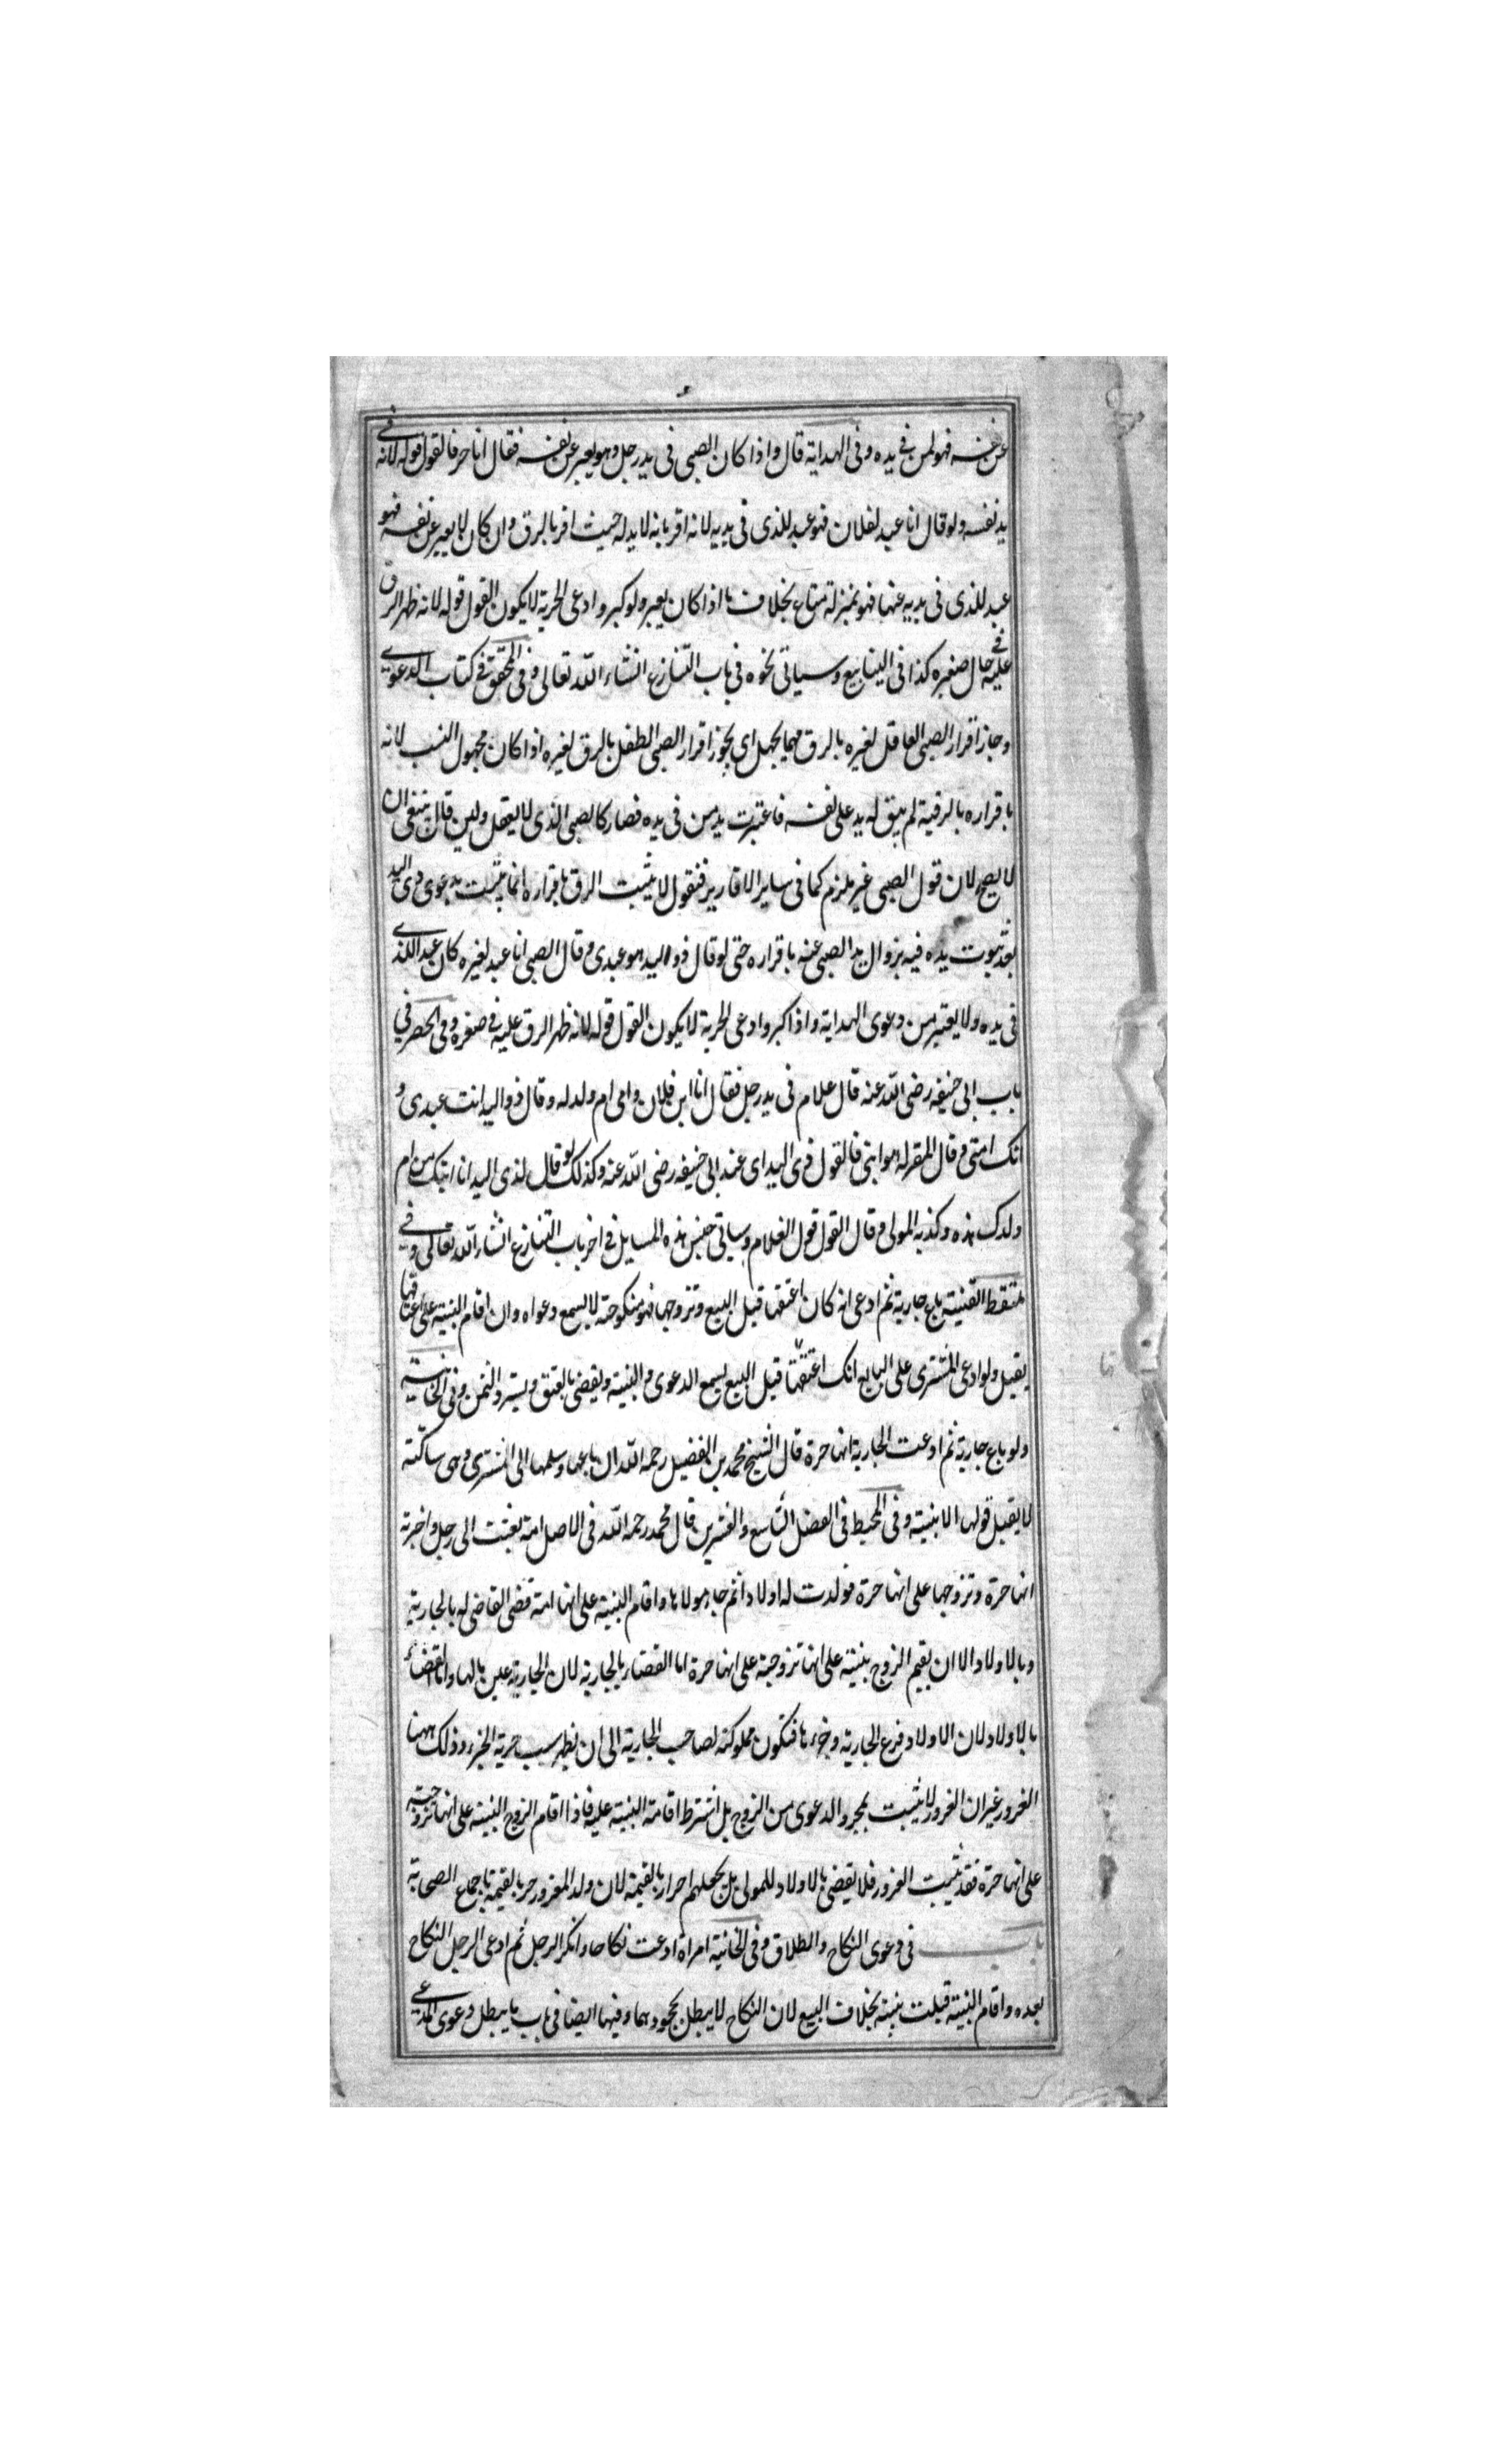 عن نفسه فهو لمن في يده وفى الهداية قال واذا كان الصبى فى يد رجل وهو يعبر عن نفسه فقال انا حر فالقول قوله لانه فى
يد نفسه ولو قال انا عبد لفلان فهو عبد للذى فى يديه لانه اقر بانه لا يد له حيث اقر بالرق وان كان لا يعبر عن نفسه فهو
عبد للذى فى يديه عنها فهو بمنزلة متاع بخلاف ما اذا كان يعبر ولو كبر وادعى الحرية لا يكون القول قوله لانه ظهر الرق
عليه فى حال صغره كذا فى الينابيع وسياتى نحوه فى باب التنازع انشاء الله تعالى وفى المحقق فى كتاب الدعوى
وجاز اقرار الصبى العاقل لغيره بالرق مهما يجهل اى يجوز اقرار الصبى الطفل بالرق لغيره اذا كان مجهول النسب لانه
باقراره بالرقية لم يبق له يد على نفسه فاعتبرت يد من فى يده فصار كالصبى الذى لا يعقل ولين قال ينبغى ان
لا يصح لان قول الصبى غير ملزم كما فى ساير الاقارير فنقول لا يثبت الرق باقراره انما يثبت بدعوى ذى اليد
بعد ثبوت يده فيه بزوال يد الصبى عنه باقراره حتى لو قال ذو اليد هو عبدى وقال الصبى انا عبد لغيره كان عبد الذى
فى يده ولا يعتبر من دعوى الهداية واذا كبر وادعى الحرية لا يكون القول قوله لانه ظهر الرق عليه فى صغره وفى الحصر فى
باب ابى حنيفه رضى الله عنه قال غلام فى يد رجل فقال انا ابن فلان وامى ام ولد له وقال ذو اليد انت عبدى و
امك امتى وقال المقر له هو ابنى فالقول ذى اليد اى عند ابى حنيفه رضى الله عنه وكذلك لو قال لذى اليد انا ابنك من ام
ولدك هذه وكذبه المولى وقال القول قول الغلام وسياتى جنس هذه المسايل فى اخر باب التنازع انشاء الله تعالى وفى
ملتقط القنية باع جارية ثم ادعى انه كان اعتقها قبل البيع وتزوجها فهو منكوحته لا يسمع دعواه وان اقام البينة على اعتاقها
يقبل ولو ادعى المشترى على البايع انك اعتقتها قبل البيع يسمع الدعوى والبينة ويقضى بالعتق ويسترد الثمن وفى الخانية
ولو باع جارية ثم ادعت الجارية انها حرة قال الشيخ محمد بن الفضيل رحمه الله ان باعها وسلمها الى المشترى وهى ساكتة
لا يقبل قولها الا ببينة وفى المحيط فى الفصل التاسع والعشرين قال محمد رحمه الله فى الاصل امة بعثت الى رجل واخبرته
انها حرة وتزوجها على انها حرة فولدت له اولادا ثم جاء مولاها واقام البينة على انها امته قضى القاضى له بالجارية
وبالاولاد الا ان يقيم الزوج بينة على انها تزوجته على انها حرة اما القضاء بالجارية لان الجارية عين مالها واما القضاء
بالاولاد لان الاولاد فرع الجارية وجزءها فتكون مملوكة لصاحب الجارية الى ان يظهر سبب حرية الجزء وذلك ههنا
الغرور غير ان الغرور لا يثبت بمجرد الدعوى من الزوج بل اشترط اقامة البينة عليه فاذا اقام الزوج البينة على انها تزوجته
على انها حرة فقد يثبت الغرور فلا يقضى بالاولاد للمولى بل يجعلهم احرار بالقيمة لان ولد المغرور حر بالقيمة باجماع الصحابة
باب فى دعوى النكاح والطلاق وفى الخانية امراة ادعت نكاحا وانكر الرجل ثم ادعى الرجل النكاح
بعده واقام البينة قبلت بينته بخلاف البيع لان النكاح لا يبطل بجحودهما وفيها ايضا فى باب ما يبطل دعوى المدعى